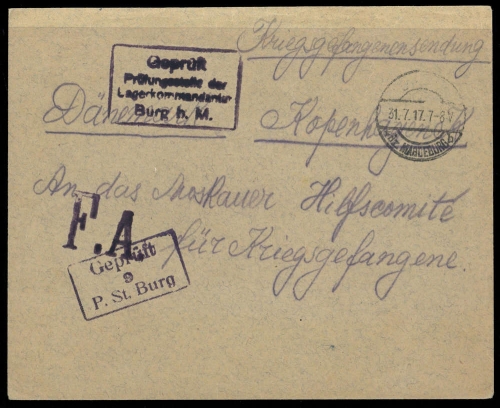 Kriegsgefangenensendung
Geprüft
Prüfungsstelle der
Lagerkommandantur
Burg b. M.
Dänemark
Kopenhagen
31.7.17.7-8V
MAGDEBURG
An das Moskauer Hilfscomité
für Kriegsgefangene.
F.A.
Geprüft
P. St. Burg